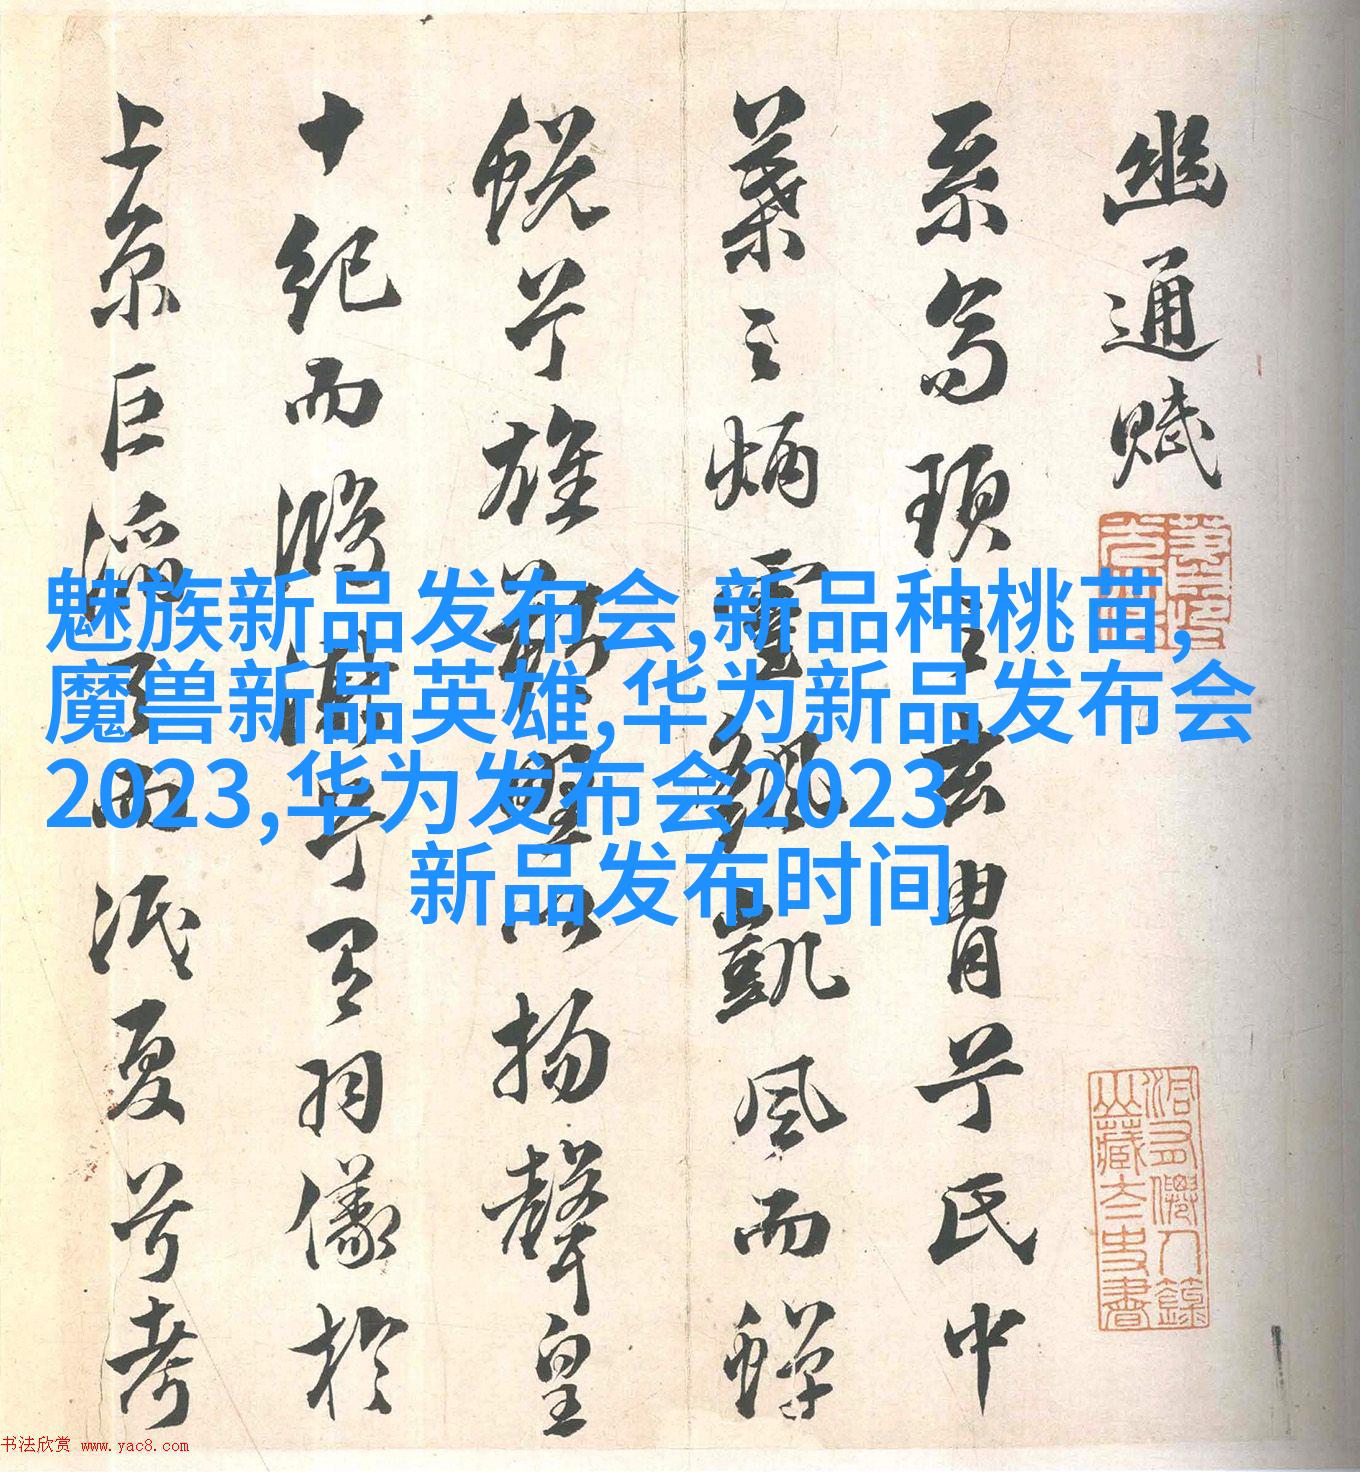 幽通賦
系高頊之玄胄兮氏中
葉之炳靈繇凱風而蟬
蛻兮雄朔野以揚聲皇
十紀而鴻漸兮有羽儀於
上京巨滔天而泯夏兮考
魅族新品发布会,新品种桃苗,
魔兽新品英雄,华为新品发布会
2023,华为发布会2023
新品发布时间
书法欣赏 www.yac8.com